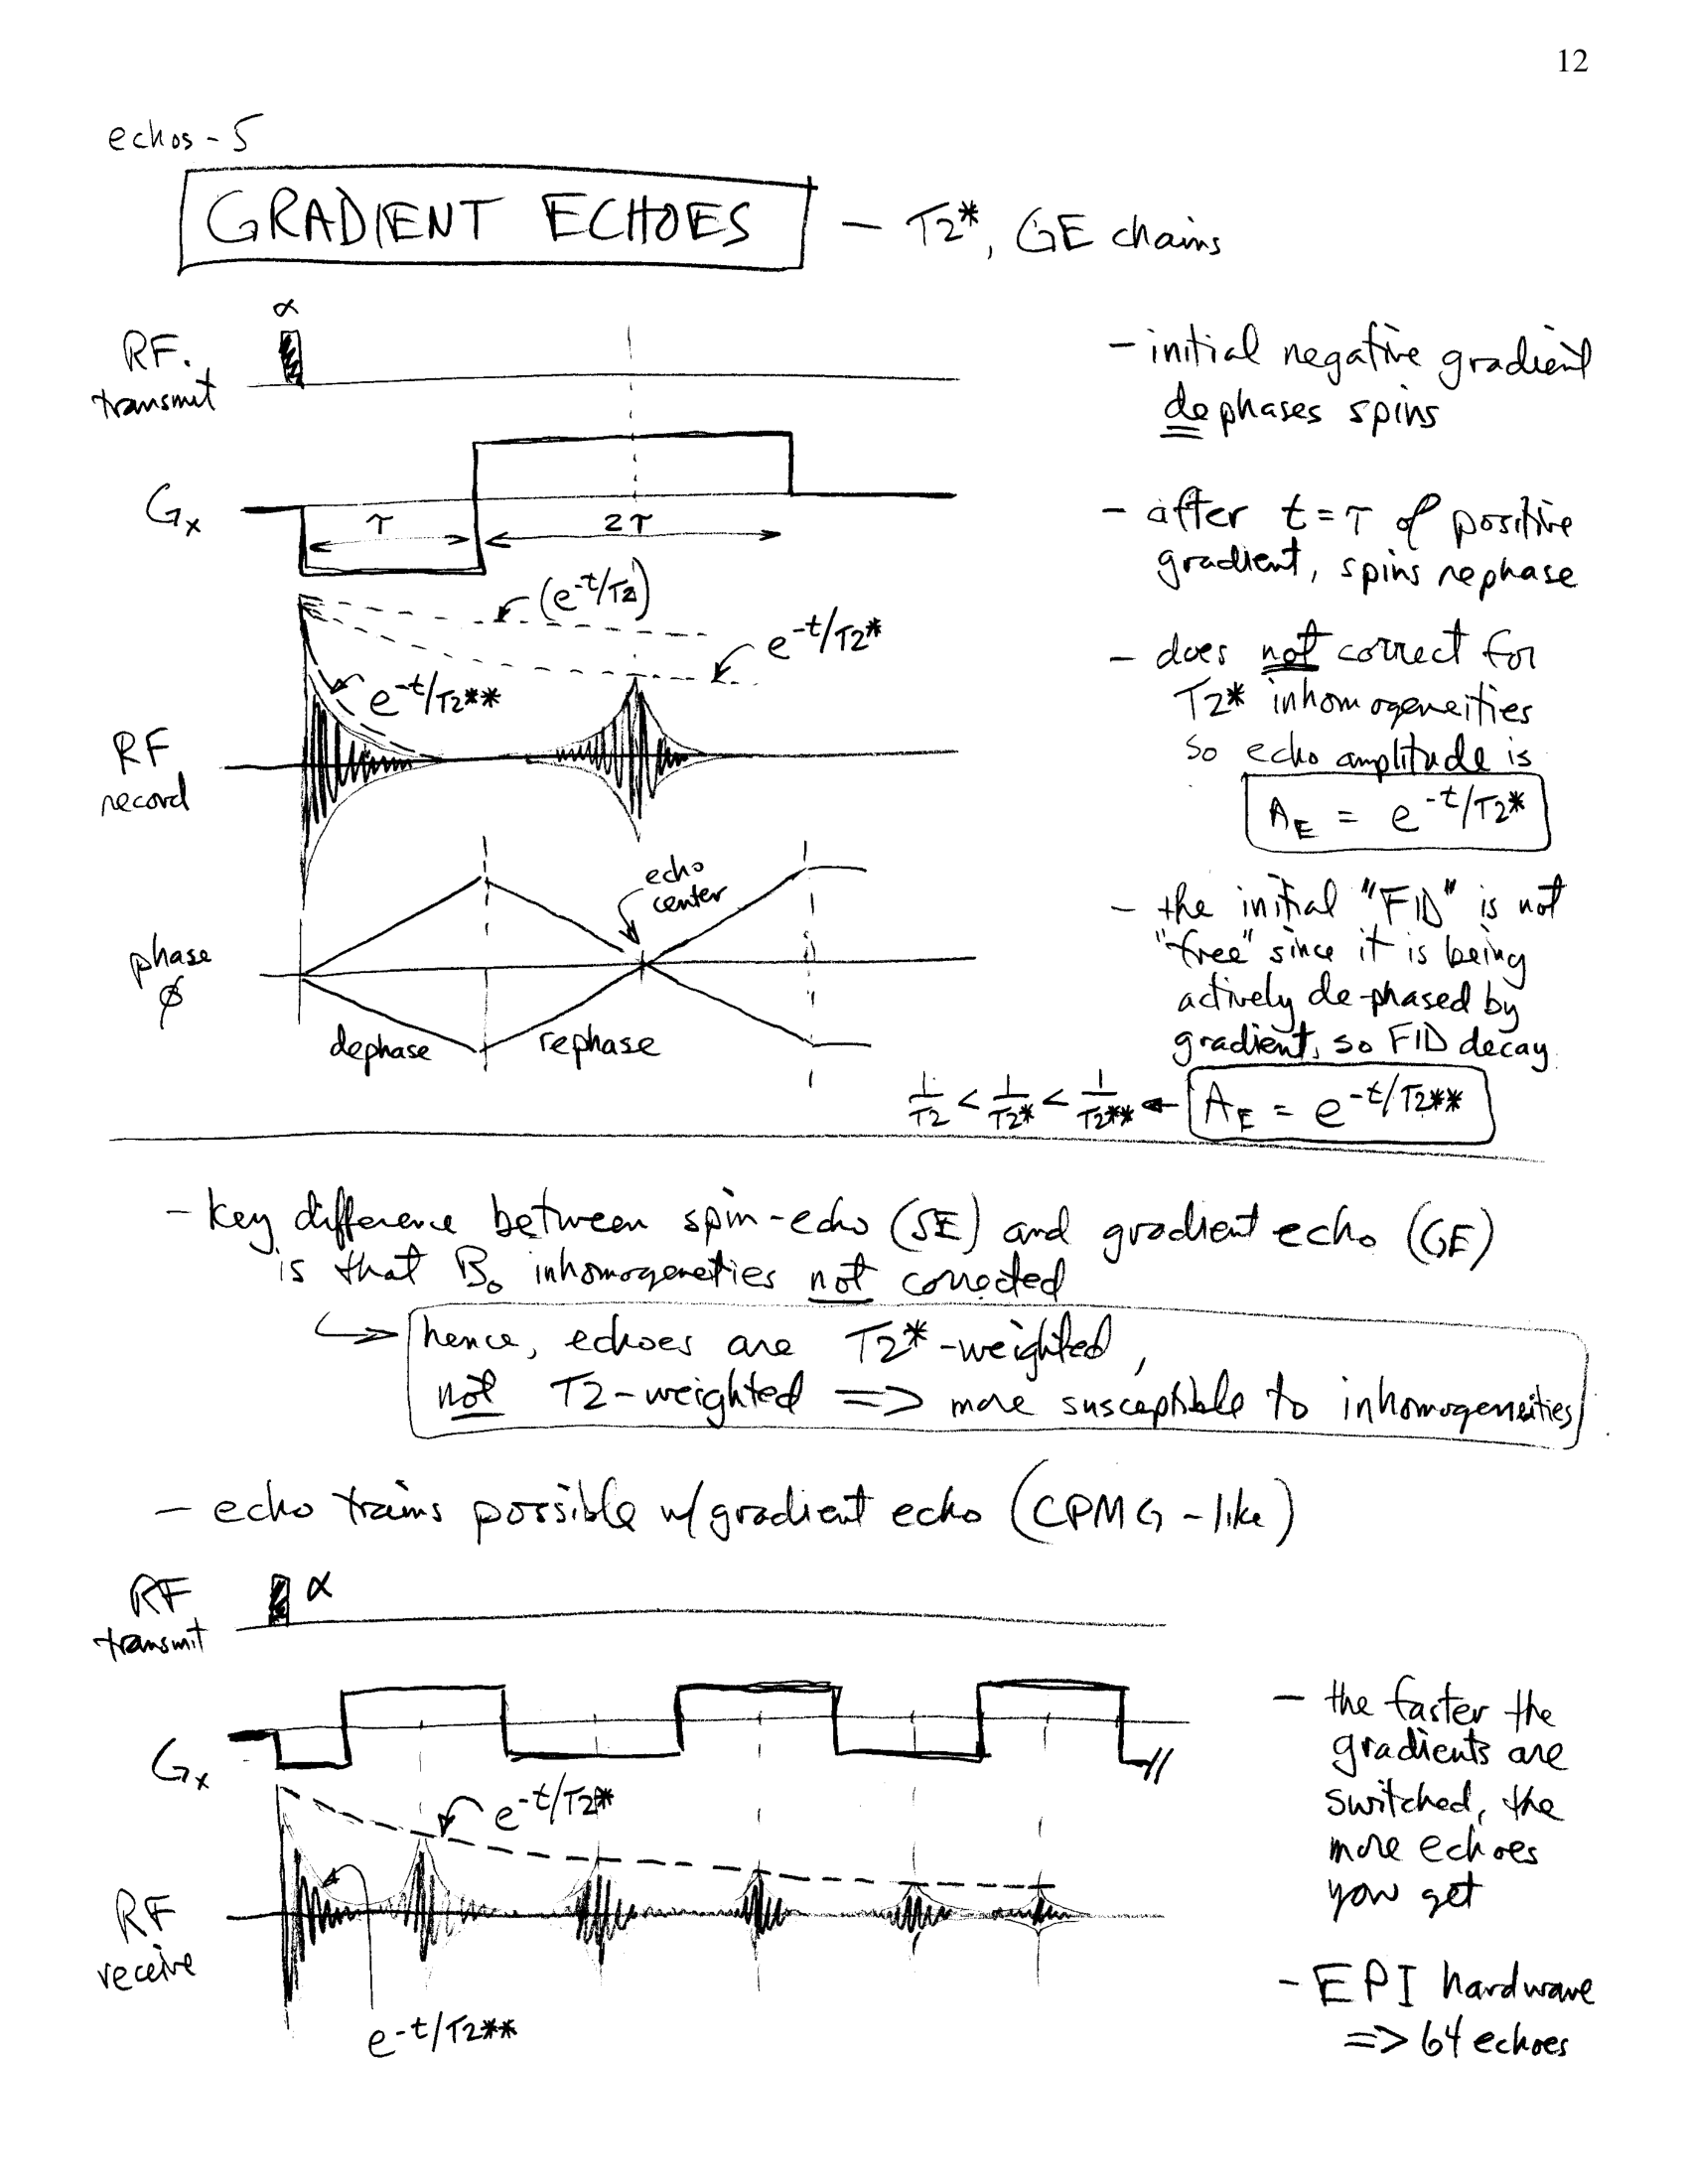 12
echos - 5
GRADIENT ECHOES — T2*, GE chains
α
RF.
transmit
Gx
τ
2τ
(e-t/T2)
e-t/T2*
e-t/T2**
RF
record
echo
center
phase
ø
dephase
rephase
- initial negative gradient
dephases spins
- after t=τ of positive
gradient, spins rephase
- does not correct for
T2* inhomogeneities
so echo amplitude is
AE = e-t/T2*
- the initial "FID" is not
"free" since it is being
actively de-phased by
gradient, so FID decay
1/T2 < 1/T2* < 1/T2** ← AE = e-t/T2**
- key difference between spin-echo (SE) and gradient echo (GE)
is that B0 inhomogeneties not corrected
↳ hence, echoes are T2*-weighted,
not T2-weighted => more susceptible to inhomogeneities
- echo trains possible w/ gradient echo (CPMG-like)
RF
transmit
α
Gx
e-t/T2*
RF
receive
e-t/T2**
- the faster the
gradients are
switched, the
more echoes
you get
- EPI hardware
=> 64 echoes